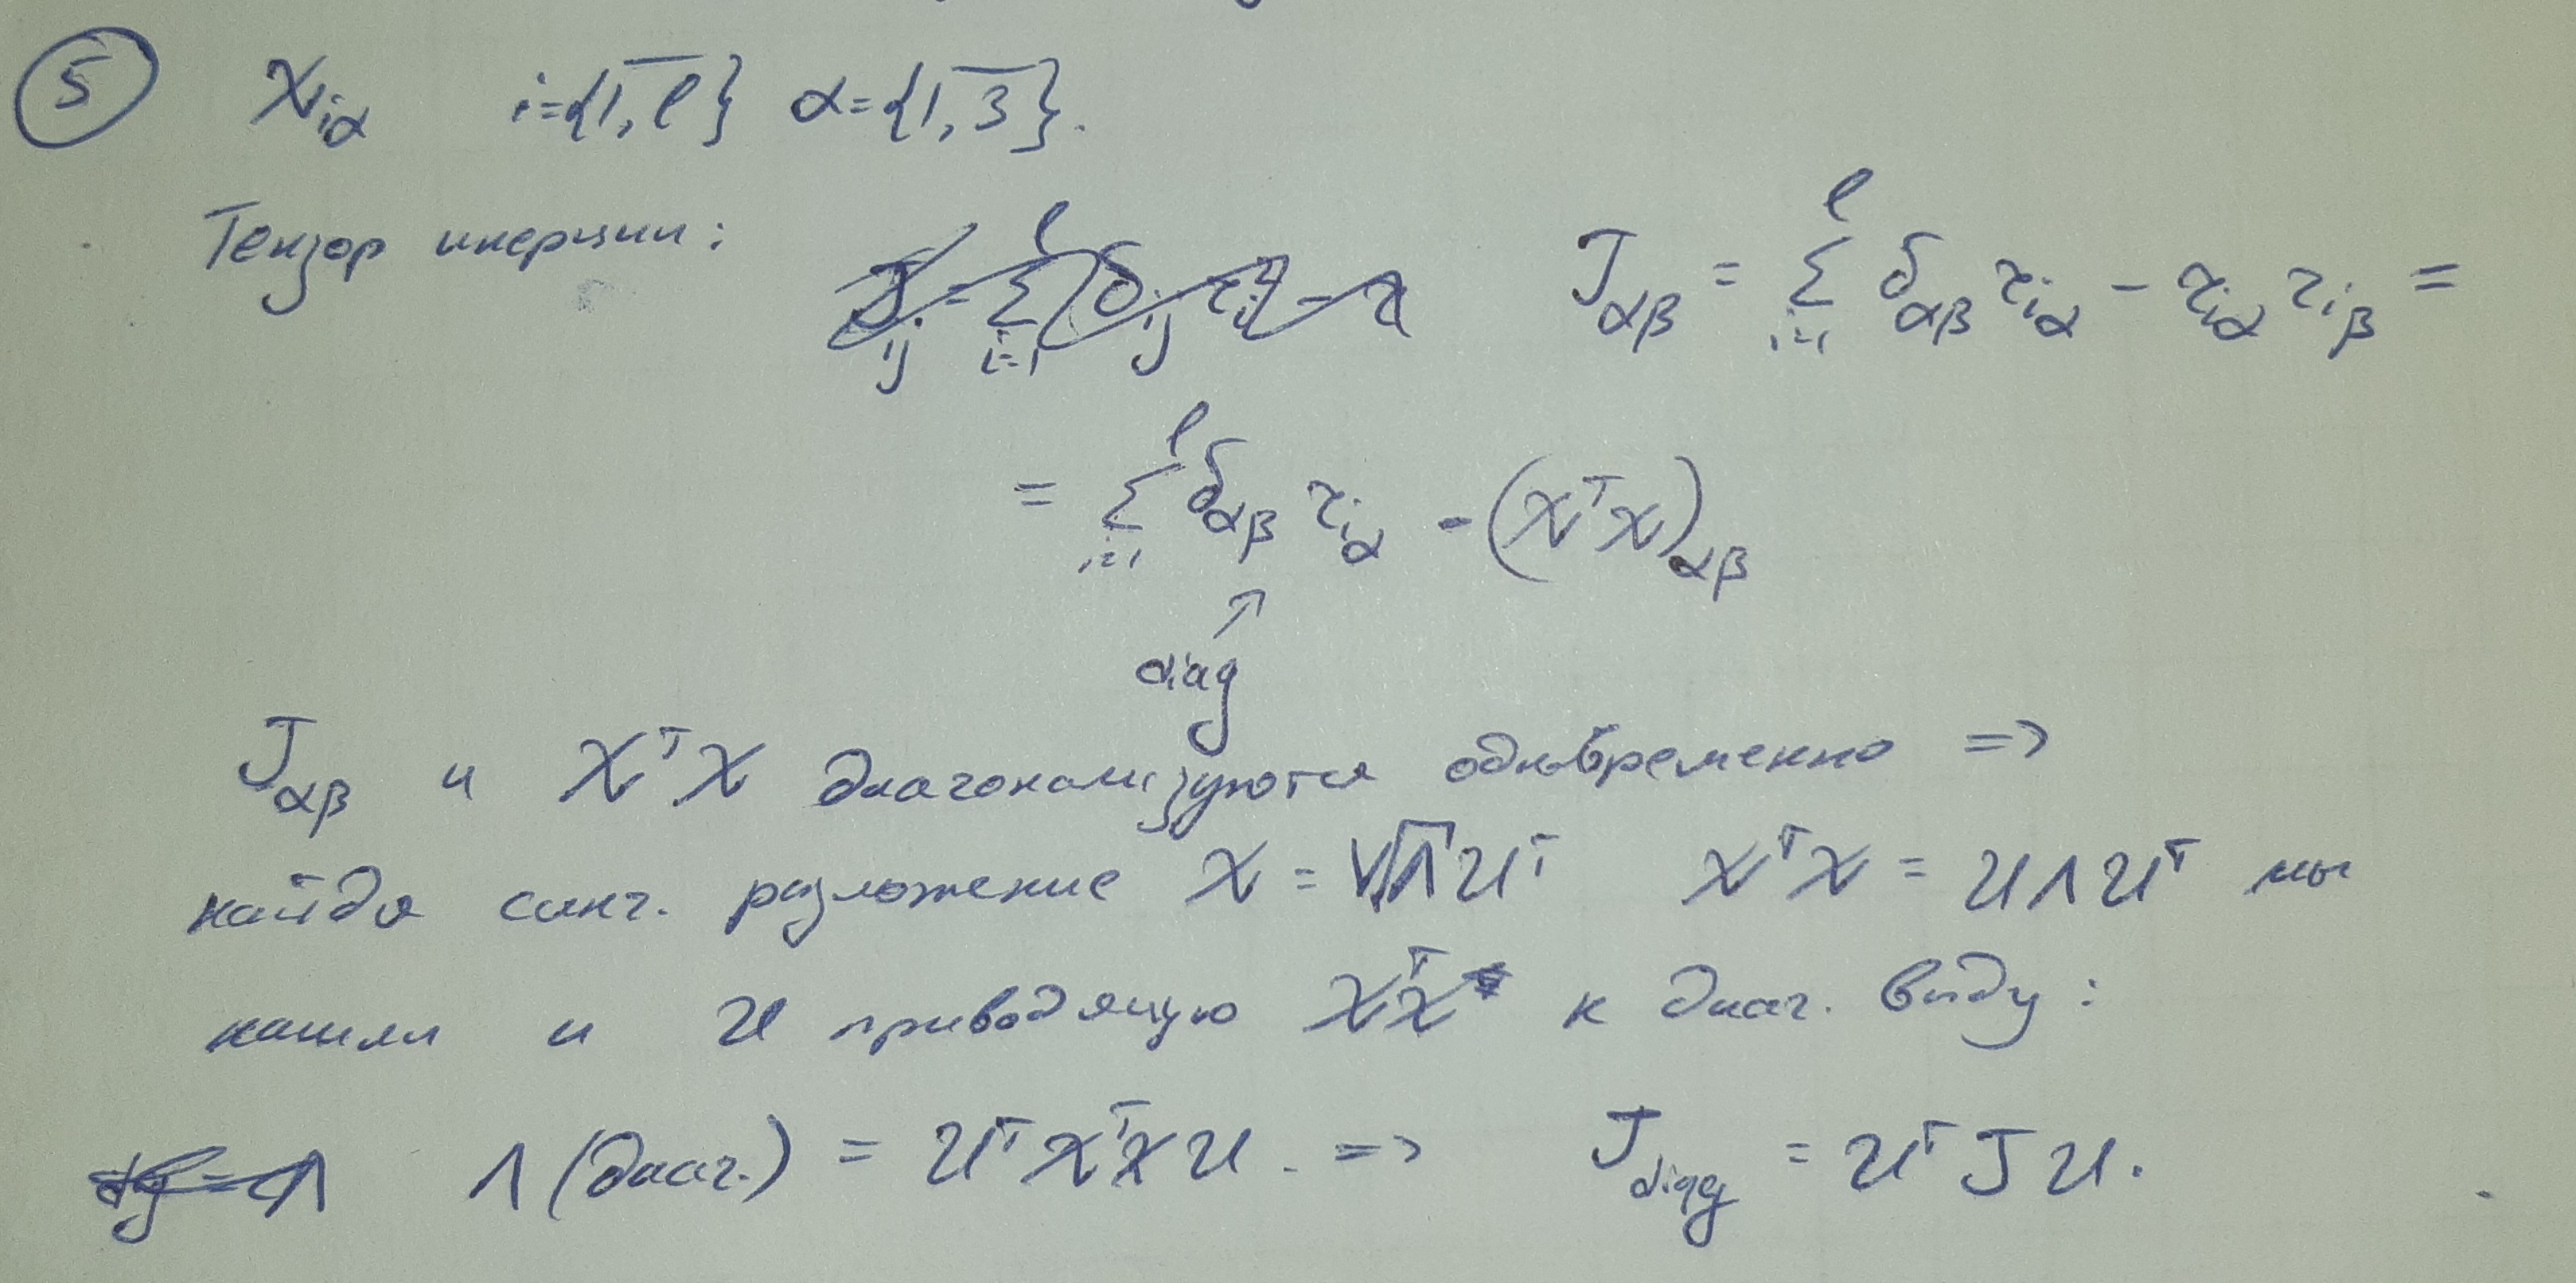 5 X_{iα} i={\overline{1,ℓ}} α={\overline{1,3}}.
Тензор инерции: J_{αβ} = \sum_{i=1}^{ℓ} δ_{αβ} r_{iα} - r_{iα} r_{iβ} =
= \sum_{i=1}^{ℓ} δ_{αβ} r_{iα} - (X^T X)_{αβ}
↗
diag
J_{αβ} и X^T X диагонализуются одновременно =>
найдя синг. разложение X = V\sqrt{Λ}U^T X^T X = UΛU^T мы
нашли и U приводящую X^T X к диаг. виду:
Λ (диаг.) = U^T X^T X U. => J_{diag} = U^T J U.